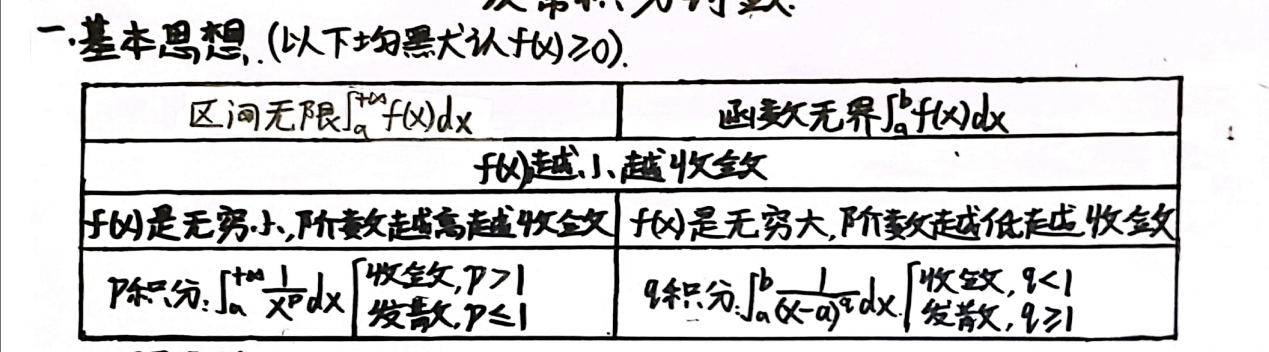 一.基本思想.(以下均默认f(x)≥0).
区间无限∫ₐ⁺∞f(x)dx 函数无界∫ₐᵇf(x)dx
f(x)越小越收敛
f(x)是无穷小,阶数越高越收敛 f(x)是无穷大,阶数越低越收敛
p积分:∫ₐ⁺∞ 1/xᵖ dx { 收敛,p>1 q积分:∫ₐᵇ 1/(x-a)^q dx. { 收敛,q<1
发散,p≤1 发散,q≥1